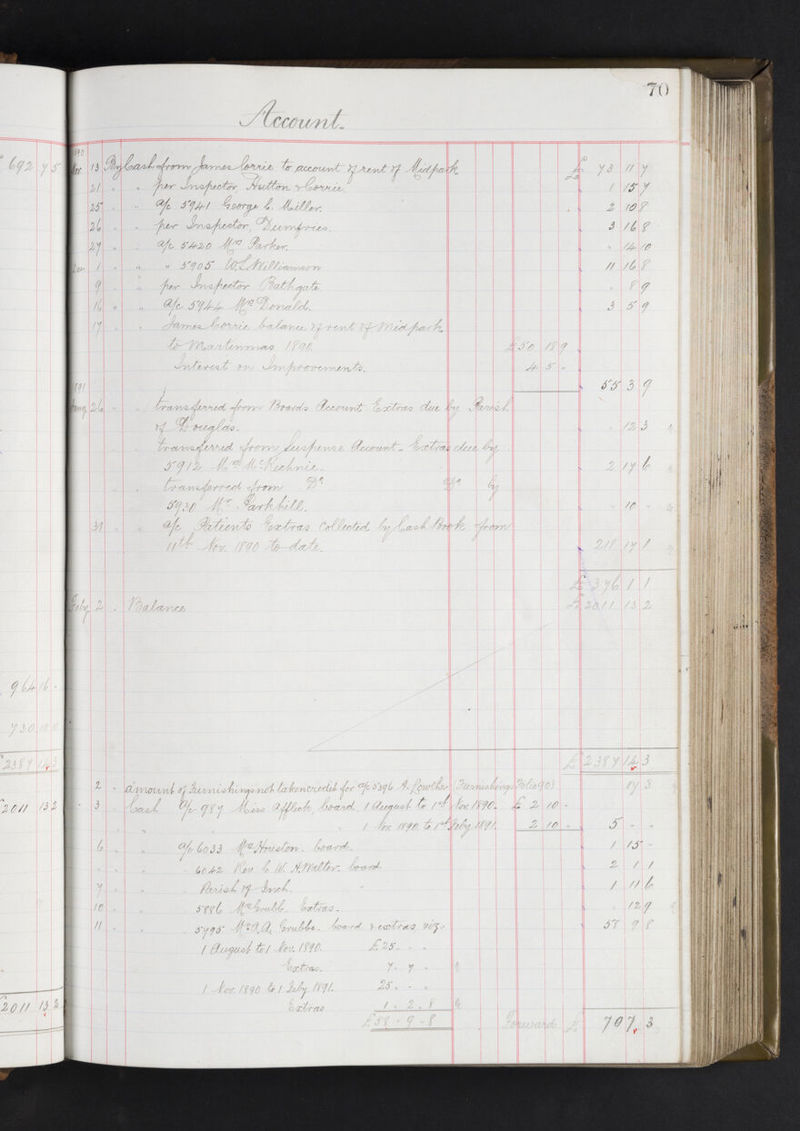 70
Account.
692 7 5
1890
Nov 13 By Cash from James Corrie to account of rent of Midpark £ 73 11 7
21 " " per Inspector Hutton & Corrie 1 15 7
25 " " a/c 5941 George C. Miller. 2 10 8
26 " " per Inspector Dumfries. 3 16 8
27 " " a/c 5420 Mrs Parker. " 14 10
Dec 1 " " " 5905 W. L. Williamson 11 16 8
9 " " per Inspector Bathgate " 8 9
16 " " a/c 5944 Mrs Donald. 3 5 9
17 " " James Corrie balance of rent of Midpark
to Martinmas 1890. £50 18 9
Interest on Improvements. 4 5 -
55 3 9
1891
Jany 26 " transferred from Boards Account Extras due by Parish
of Douglas. " 12 3
transferred from Suspense Account - Extras due by
5912 McKechnie. 2 17 6
transferred from Do Do by
5930 Mr Parkhill. " 10 -
31 " a/c Patients Extras collected by Cash Book from
11th Nov. 1890 to date. 218 17 1
£ 376 1 1
Feby 2 " Balance £ 2011 13 2
964 16 -
730
2387 14 3
£ 2387 14 3
2 " amount of Furnishings not taken credit for a/c 5396 A. Lowther (Furnishings Folio 90) 17 3
2011 13 2
3 " Cash a/c 987 Miss Affleck, board. 1 August to 1st Nov 1890. £ 2 10 -
1 Nov 1890 to 1st Feby 1891. 2 10 - 5 - -
6 " " a/c 6033 Mrs Houston. board. 1 15 -
" " 6042 Rev C. W. H. board 2 1 1
7 " " Parish of Inch. 1 11 6
10 " " 5886 Mrs Grubb. Extras. " 12 9
11 " " 5795 A. Grubbs. board & extras viz.
58 9 8
1 August to 1 Nov. 1890. £25 - -
Extras. 7 - 7 -
1 Nov 1890 to 1 Feby 1891. 25 - -
Extras 1 - 2 - 8
£58 - 9 - 8
2011 13 2
Forward £ 707 3